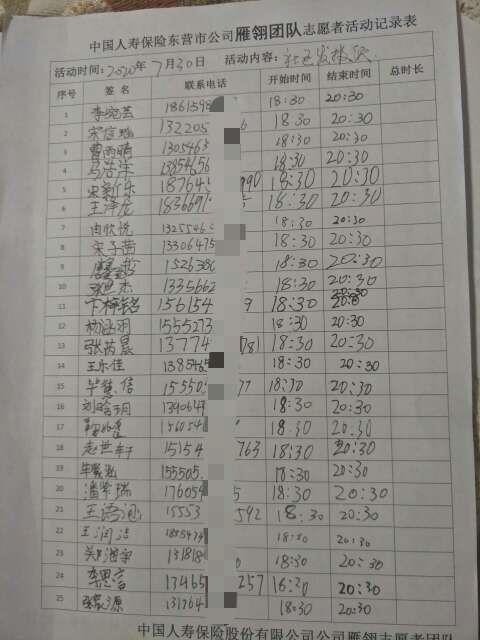 中国人寿保险东营市公司雁翎团队志愿者活动记录表
活动时间:2020年7月30日 活动内容:社区发放
序号 签名 联系电话 开始时间 结束时间 总时长
1 李婉芸 1861598 18:30 20:30
2 宋信瑞 132205 6 18:30 20:30
3 曹雨晴 1305463 18:30 20:30
4 马浩洋 13854656 18:30 20:30
5 18764 990 18:30 20:30
6 王泽龙 1836697 18:30 20:30
7 由欣悦 1325546 18:30 20:30
8 宋子茜 13306475 18:30 20:30
9 152638 18:30 20:30
10 1335662 18:30 20:30
11 卞梓铭 156154 9 18:30 20:30
12 杨涵羽 1555273 18:30 20:30
13 张芮晨 13774 781 18:30 20:30
14 王乐佳 138545 18:30 20:30
15 15550 77 18:30 20:30
16 1390647 18:30 20:30
17 156054 18:30 20:30
18 15154 763 18:30 20:30
19 155505 18:30 20:30
20 潘紫瑞 176054 5 18:30 20:30
21 王语涵 15553 592 18:30 20:30
22 王润洁 18:30 20:30
23 131818 18:30 20:30
24 李思言 13465 257 18:30 20:30
25 131764 18:30 20:30
中国人寿保险股份有限公司公司雁翎志愿者团队